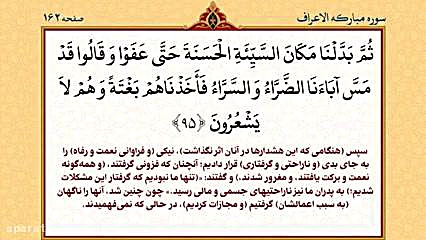 سوره مبارکه الاعراف
صفحه ۱۶۲
ثُمَّ بَدَّلْنَا مَكَانَ السَّيِّئَةِ الْحَسَنَةَ حَتَّى عَفَوْا وَ قَالُوا قَدْ
مَسَّ آبَاءَنَا الضَّرَّاءُ وَ السَّرَّاءُ فَأَخَذْنَاهُمْ بَغْتَةً وَ هُمْ لاَ
يَشْعُرُونَ ﴿۹۵﴾
سپس (هنگامی که این هشدارها در آنان اثر نگذاشت)، نیکی (و فراوانی نعمت و رفاه) را
به جای بدی (و ناراحتی و گرفتاری) قرار دادیم؛ آنچنان که فزونی گرفتند، (و همه‌گونه
نعمت و برکت یافتند، و مغرور شدند،) و گفتند: «(تنها ما نبودیم که گرفتار این مشکلات
شدیم؛) به پدران ما نیز ناراحتیهای جسمی و مالی رسید.» چون چنین شد، آنها را ناگهان
(به سبب اعمالشان) گرفتیم (و مجازات کردیم)، در حالی که نمی‌فهمیدند.